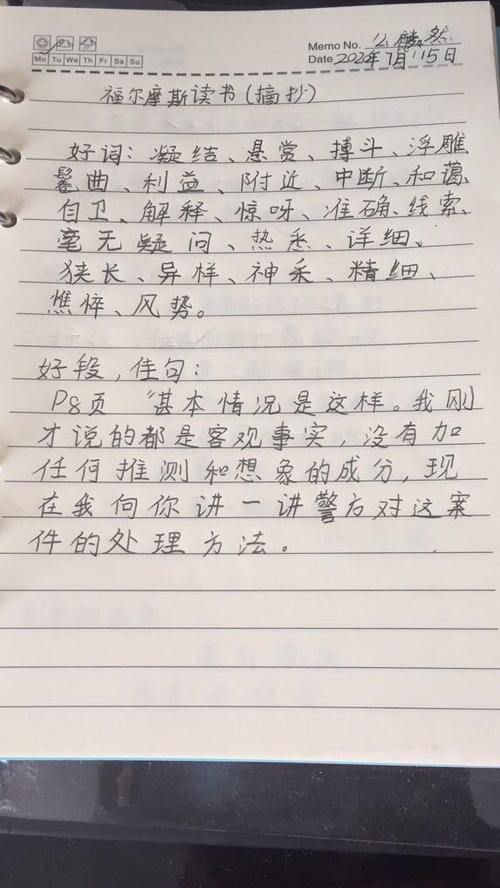 Memo No. 公麟然
Mo Tu We Th Fr Sa Su
Date 2022年7月15日
福尔摩斯读书(摘抄)
好词：凝结、悬赏、搏斗、浮雕
鬈曲、利益、附近、中断、和蔼
自卫、解释、惊呀、准确、线索、
毫无疑问、热悉、详细、
狭长、异样、神采、精细、
憔悴、风势。
好段，佳句：
P8页 “基本情况是这样。我刚
才说的都是客观事实，没有加
任何推测和想象的成分，现
在我向你讲一讲警方对这案
件的处理方法。